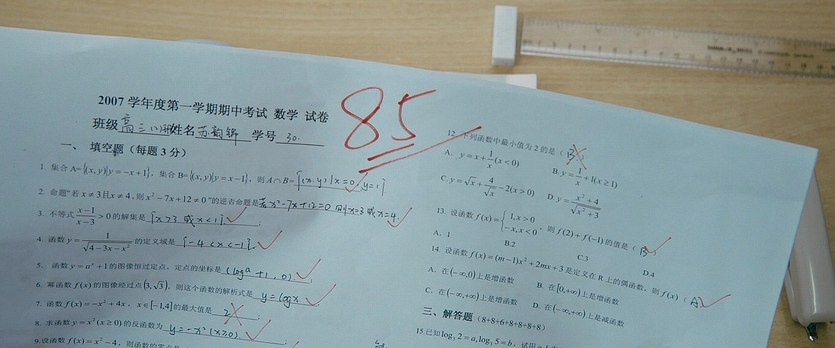 2007 学年度第一学期期中考试 数学 试卷
85
班级 高三(1)班 姓名 学号 30
一、 填空题（每题 3 分）
1. 集合 A={(x,y)|y=-x+1}，集合 B={(x,y)|y=x-1}，则 A∩B= {(x,y)|x=0,y=1}
2. 命题"若 x≠3且x≠4，则 x²-7x+12≠0"的逆否命题是 若x²-7x+12=0 则x=3 或 x=4.
3. 不等式 (x-1)/(x-3)>0 的解集是 {x>3 或 x<1}.
4. 函数 y=1/√(4-3x-x²) 的定义域是 {-4<x<-1}.
5. 函数 y=aˣ+1 的图像恒过定点，定点的坐标是
6. 幂函数 f(x) 的图像经过点(3,√3)，则这个函数的解析式是 y=logx.
7. 函数 f(x)=-x²+4x，x∈[-1,4]的最大值是 2
8. 求函数 y=x²(x≥0) 的反函数为 y=-x²(x≥0)
9. 设函数 f(x)=x²-4，则函数的零点是
12. 下列函数中最小值为 2 的是（ B ）
A. y=x+1/x(x<0)
B. y=1/x+1(x≥1)
C. y=√x+4/√x-2(x>0)
D. y=(x²+4)/√(x²+3)
13. 设函数 f(x)={1,x>0 -x,x<0，则 f(2)+f(-1)的值是（ B ）
A. 1
B.2
C.3
D.4
14. 设函数 f(x)=(m-1)x²+2mx+3 是定义在 R 上的偶函数，则 f(x)（ A ）
A. 在(-∞,0)上是增函数
B. 在[0,+∞)上是增函数
C. 在(-∞,+∞)上是增函数
D. 在(-∞,+∞)上是减函数
三、解答题（8+8+6+8+8+8+8）
15.已知 log₃2=a, log₃5=b，试用